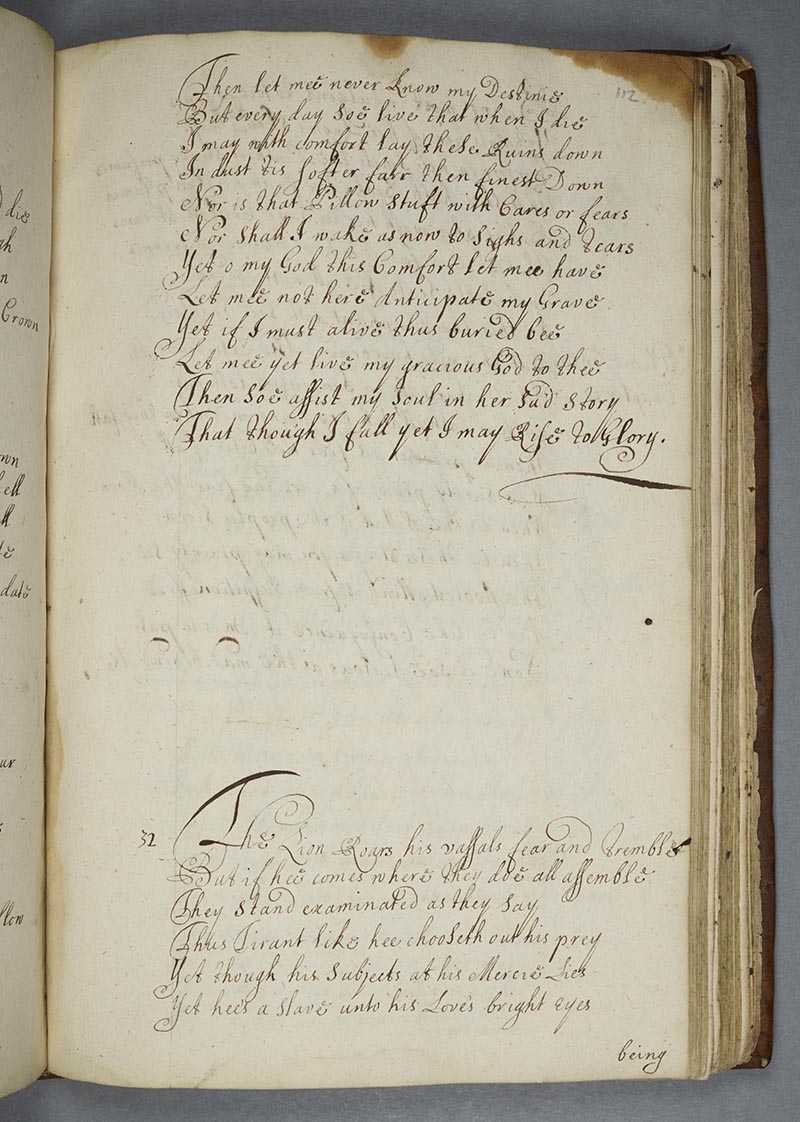 112
Then let mee never know my Destinie
But every day soe live that when I die
I may with comfort lay these Ruins down
In dust tis softer farr then finest Down
Nor is that Pillow stuft with Cares or fears
Nor shall I wake as now to sighs and tears
Yet o my God this Comfort let mee have
Let mee not here Anticipate my Grave
Yet if I must alive thus buried bee
Let mee yet live my gracious God to thee
Then soe assist my soul in her sad story
That though I fall yet I may Rise to Glory.
32 The Lion Roars his vassals fear and tremble
But if hee comes where they doe all assemble
They stand examinated as they say
Thus Tirant like hee chooseth out his prey
Yet though his Subjects at his Mercie Lies
Yet hee's a slave unto his Love's bright eyes
being
die
gh
n
Crown
own
ell
ll
te
date
ur
llow